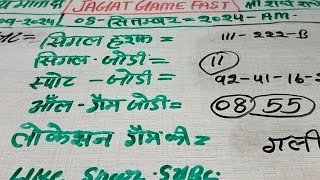 JAGAT GAME FAST
09-2024 08-सितम्बर=2024-AM-
सिंगल हरूफ= 111-222-B
सिंगल-जोडी= 11
स्पोट-जोडी= 92-41-16-
ऑल-गैम जोडी= 08 55
लोकेसन गैम की= गली
LIKE Share SUBC